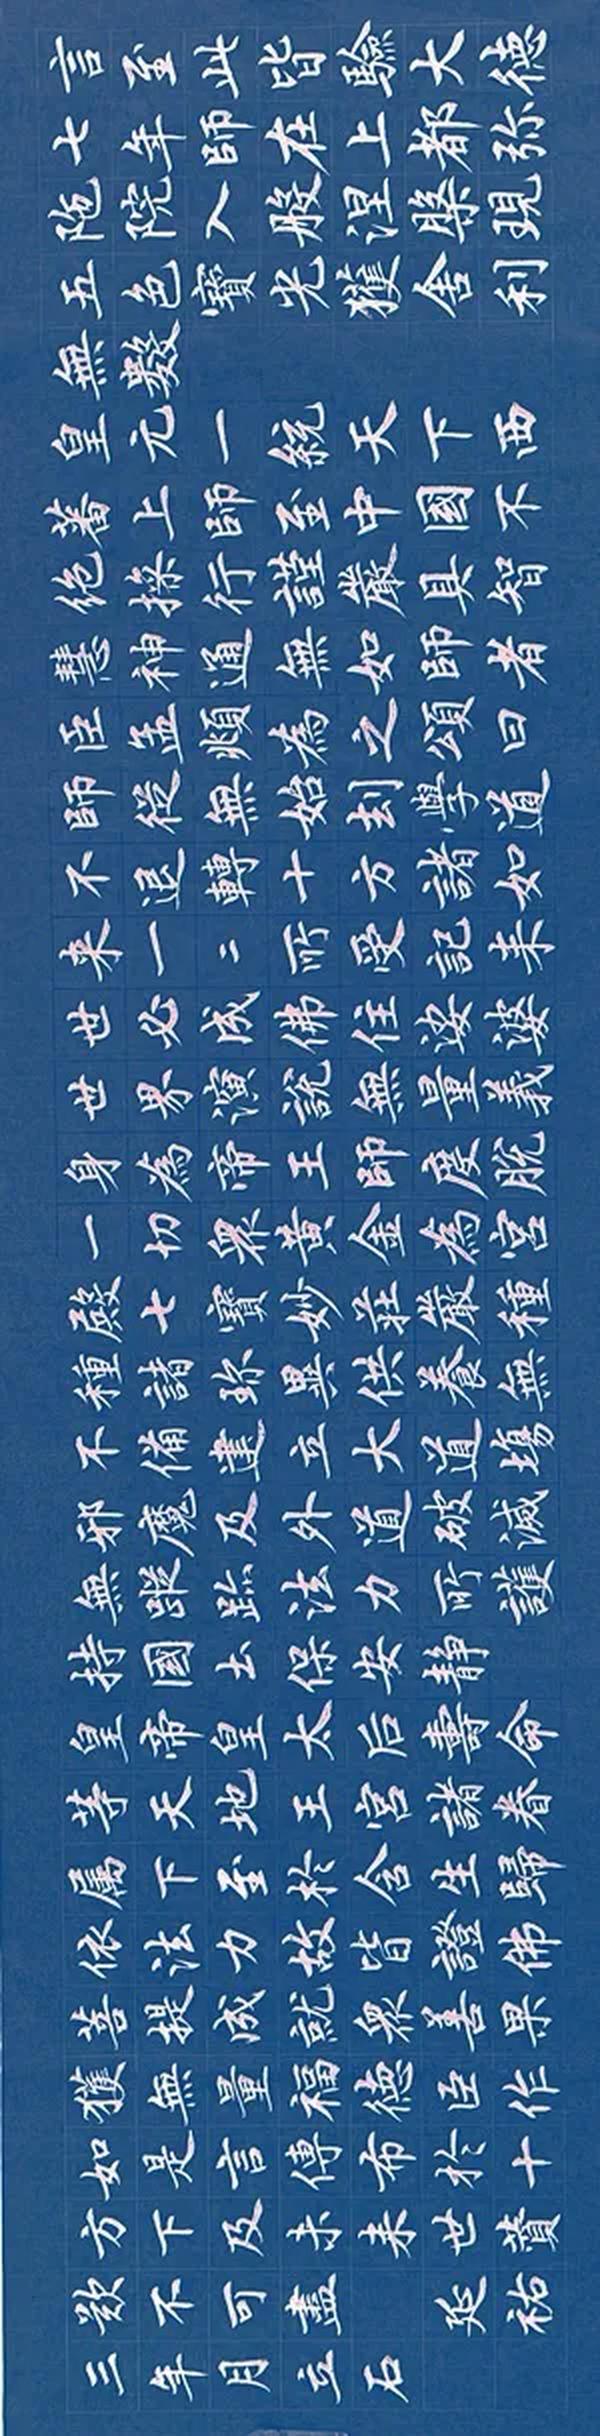 言至此皆驗大德
七年師在上都弥
陁院入般涅槃現
五色寶光獲舍利
無數
皇元一統天下西
蕃上師至中國不
絶操行謹嚴具智
慧神通無如師者
臣孟頫為之頌曰
師從無始劫學道
不退轉十方諸如
来一二所受記来
世必成佛住娑婆
世界演說無量義
身為帝王師度脫
一切衆黃金為宮
殿七寶妙莊嚴種
種諸珎異供養無
不備建立大道場
邪魔及外道破滅
無蹤跡法力所護
持國土保安靜
皇帝皇太后壽命
等天地王宮諸眷
屬下至於含生歸
依法力故皆證佛
菩提成就衆善果
獲無量福德臣作
如是言傳布於十
方下及未来世贊
歎不可盡 延祐
三年月立石